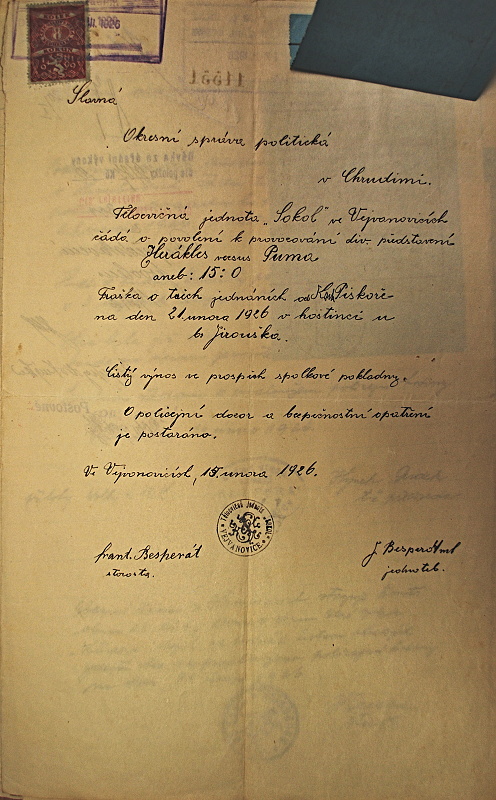 Slavná
Okresní správa politická
v Chrudimi.
Tělocvičná jednota „Sokol" ve Vejvanovicích
žádá o povolení k provozování div. představení
Herakles versus Puma
aneb: 15:0
Fraška o třech jednáních od Piskoře
na den 21 února 1926 v hostinci u
br Jirouška.
Čistý výnos ve prospěch spolkové pokladny.
O policejní dozor a bezpečnostní opatření
je postaráno.
Ve Vejvanovicích, 15. února 1926.
Tělocvičná jednota „Sokol"
VEJVANOVICE
Frant. Besperát
starosta.
J. Besperát ml
jednatel.